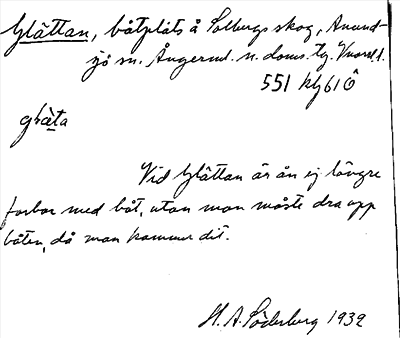 Glättan, båtplats å Solbergs skog, Anund-
sjö sn. Ångerml. n. doms. tg. Vnorrl. l.
551 kg 61 Ö
glœ̀ta
Vid Glättan är ån ej längre
farbar med båt, utan man måste dra upp
båten, då man kommer dit.
H. A. Söderberg 1932